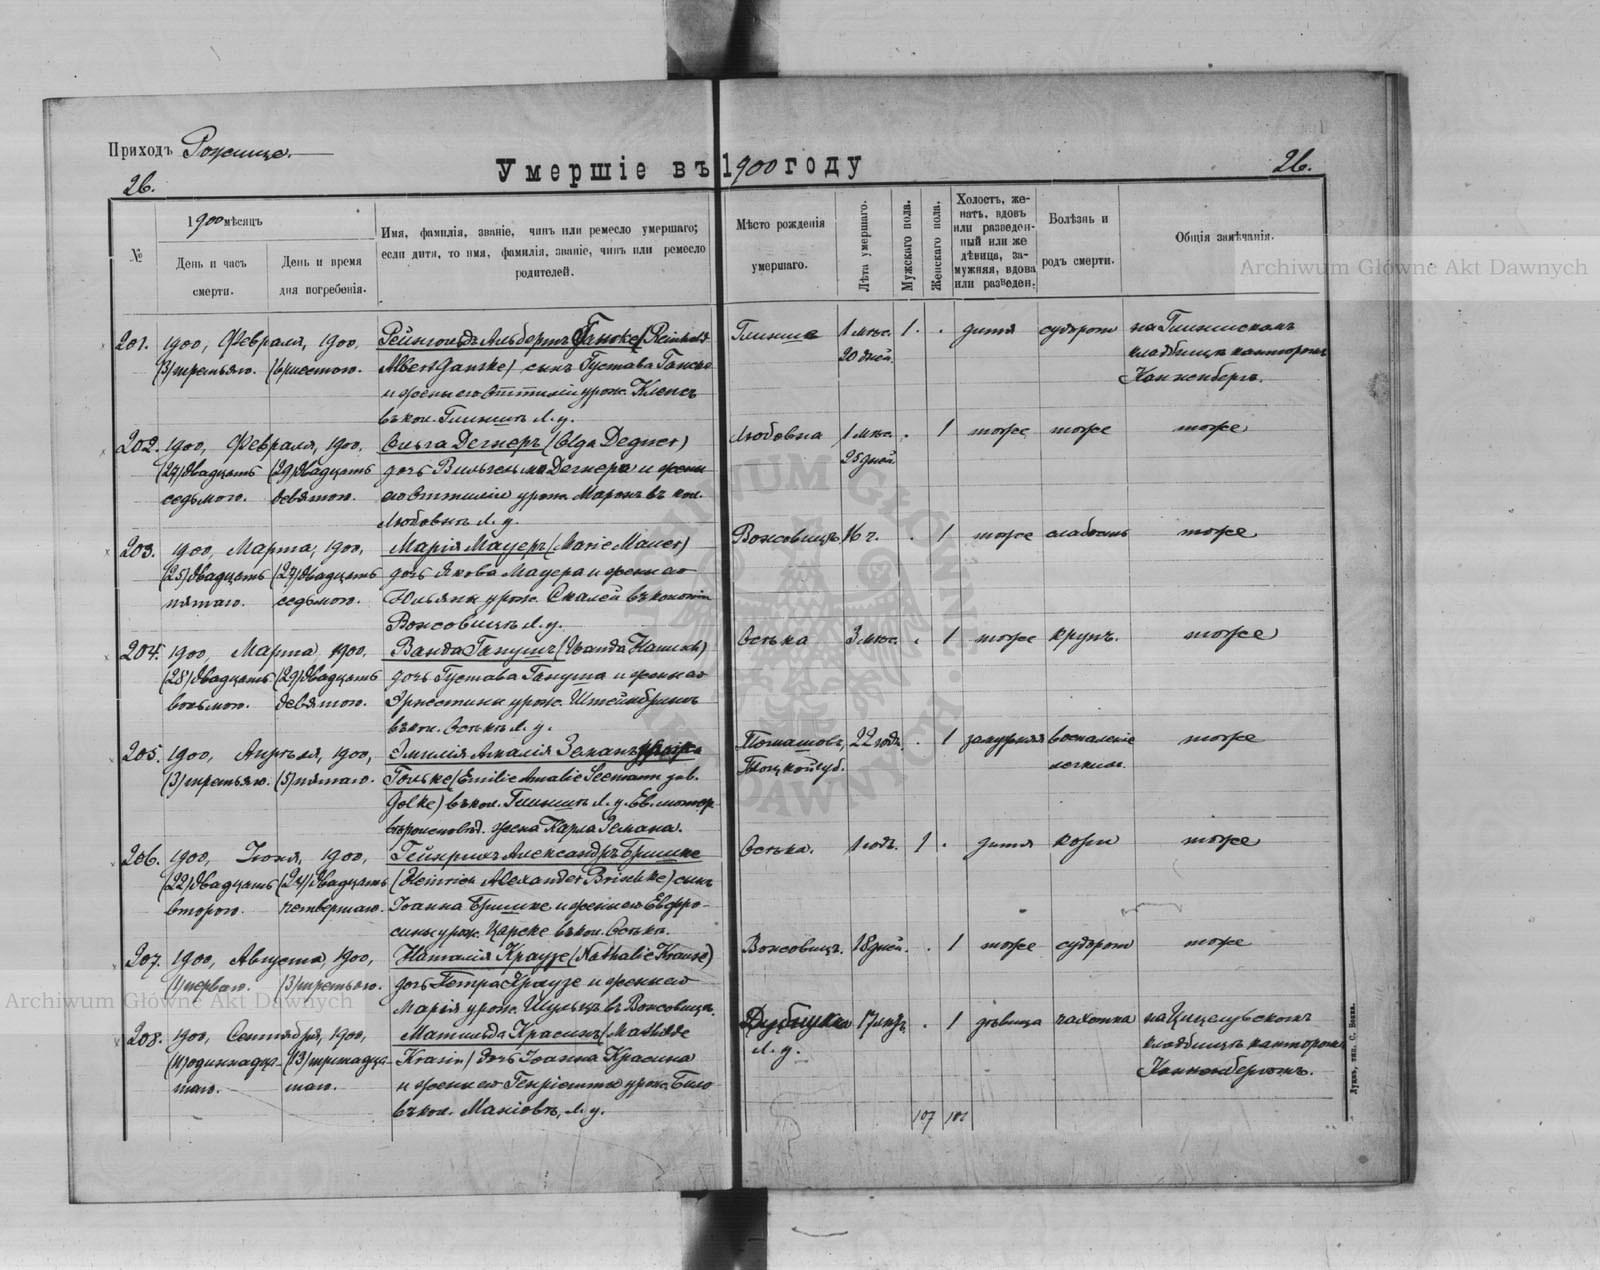 Приходъ Рожище.
Умершіе въ 1900 году
26.
26.
№
1900 мѣсяцъ
День и часъ смерти.
День и время дня погребенія.
Имя, фамилія, званіе, чинъ или ремесло умершаго;
если дитя, то имя, фамилія, званіе, чинъ или ремесло
родителей.
Мѣсто рожденія
умершаго.
Лѣта умершаго.
Мужскаго пола.
Женскаго пола.
Холостъ, же-
натъ, вдовъ
или разведен-
ный или же
дѣвица, за-
мужняя, вдова
или разведен.
Болѣзнь и
родъ смерти.
Общія замѣчанія.
201. 1900, Февраля, 1900, Рейнгольдъ Альбертъ Ганске (Reinhold Глинище 1 мѣс. 1 . дитя судороги на Глинискомъ
(3) третьяго. (6) шестого. Albert Ganske) сынъ Густава Ганске 20 дней. кладбищѣ канторомъ
и жены его Оттиліи урож. Клепсъ Конненбергъ.
въ кол. Глинищѣ Л. у.
202. 1900, Февраля, 1900. Ольга Дегнеръ (Olga Degner) Любовна 1 мѣс. . 1 тоже тоже тоже
(27) двадцать (29) двадцать дочь Вильгельма Дегнера и жены 25 дней.
седьмого. девятого. его Оттиліи урож. въ кол.
Любовнѣ Л. у.
203. 1900, Марта, 1900, Марія Мауеръ (Marie Mauer) 16 ч. . 1 тоже слабость тоже
(25) двадцать (27) двадцать дочь Якова Мауера и жены его
пятаго. седьмого. Юльяны урож. въ колоніи
Л. у.
204. 1900, Марта, 1900. Ванда Ганушъ (Wanda Hanusch) Остька 3 мѣс. . 1 тоже крупъ. тоже
(28) двадцать (29) двадцать дочь Густава Гануша и жены его
восьмого. девятого. Эрнестины урож. Штейнбринкъ
въ кол. Оськѣ Л. у.
205. 1900, Апрѣля, 1900, Эмилія Амалія Земанъ урож. 22 годъ. . 1 замужняя воспаленіе тоже
(3) третьяго. (5) пятаго. Гольке (Emilie Amalie Seemann geb. губ. легкихъ.
Golke) въ кол. Глинищѣ Л. у. Ев. лютер.
вѣроисповѣд. жена Карла Земана.
206. 1900, Іюня, 1900, Гейнрихъ Александръ Бришке Оська. 1 годъ. 1 . дитя кори тоже
(22) двадцать (24) двадцать (Heinrich Alexander Brischke) сынъ
второго. четвертаго. Іоанна Бришке и жены его Евфро-
сины урож. Царске въ кол. Оськѣ.
207. 1900, Августа, 1900, Наталія Краузе (Nathalie Krause) 18 дней. . 1 тоже судороги тоже
(1) перваго. (3) третьяго. дочь Петра Краузе и жены его
Маріи урож. Шульцъ въ
208. 1900, Сентября, 1900, Матильда Красинъ (Mathilde 17 лѣтъ. . 1 дѣвица чахотка
(11) одиннадца- (13) тринадца- Krasin) дочь Іоанна Красина Л. у. кладбищѣ канторомъ
таго. таго. и жены его Генріетты урож. Конненбергомъ.
въ кол. Маніовъ, Л. у.
107 101
Луцкъ, тип. С. Бокъ.
Archiwum Główne Akt Dawnych
Archiwum Główne Akt Dawnych
ARCHIWUM GŁÓWNE AKT DAWNYCH